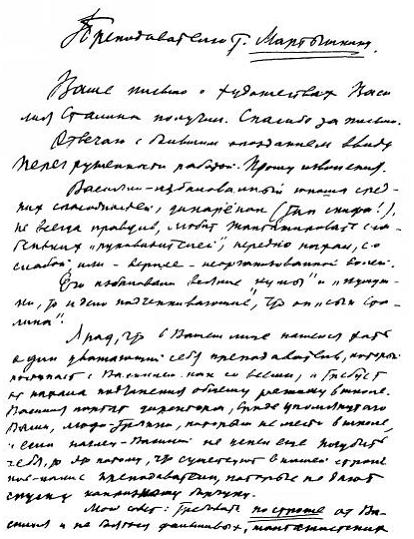 Преподавателю т. Мартышину.
Ваше письмо о художествах Васи-
лия Сталина получил. Спасибо за письмо.
Отвечаю с большим опозданием ввиду
перегруженности работой. Прошу извинения.
Василий – избалованный юноша сред-
них способностей, дикарёнок (тип скифа!),
не всегда правдив, любит шантажировать сла-
беньких "руководителей", нередко нахал, со
слабой или – вернее – неорганизованной волей.
Его избаловали всякие "кумы" и "кумуш-
ки", то и дело подчёркивающие, что он "сын Ста-
лина".
Я рад, что в Вашем лице нашёлся хоть
один уважающий себя преподаватель, который
поступает с Василием как со всеми, и требует
от нахала подчинения общему режиму в школе.
Василия портят директора, вроде упомянутого
Вами, люди-тряпки, которым не место в школе,
и если наглец-Василий не успел ещё погубить
себя, то это потому, что существуют в нашей стране
кое-какие преподаватели, которые не дают
спуску капризному барчуку.
Мой совет: требовать построже от Ва-
силия и не бояться фальшивых, шантажистских